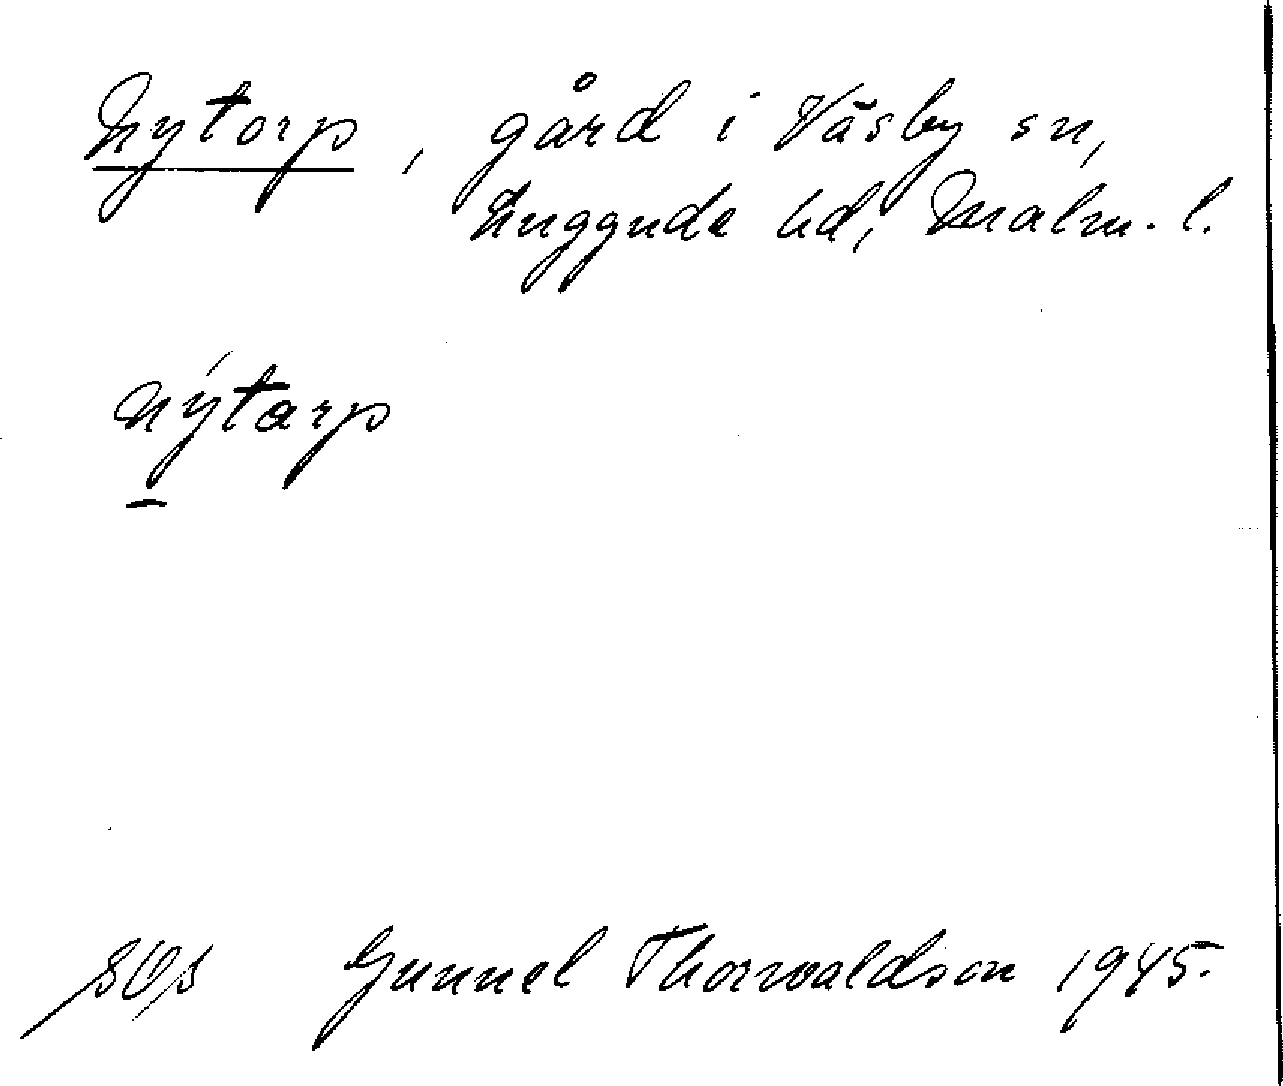 Nytorp, gård i Väsby sn,
Luggude hd, Malm. l.
nýtarp
SOs Gunnel Thorwaldson 1945.